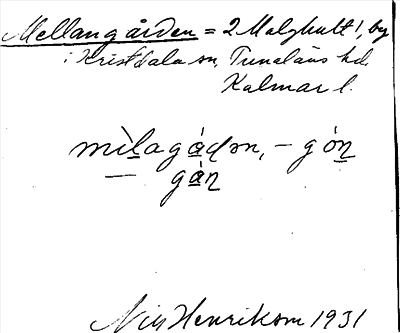 Mellangården = 2 Malghult 1, by
i Kristdala sn, Tunaläns hd.
Kalmar l.
mìlagád̲ən, – gón̲
— gán̲
Nils Henriksson 1931